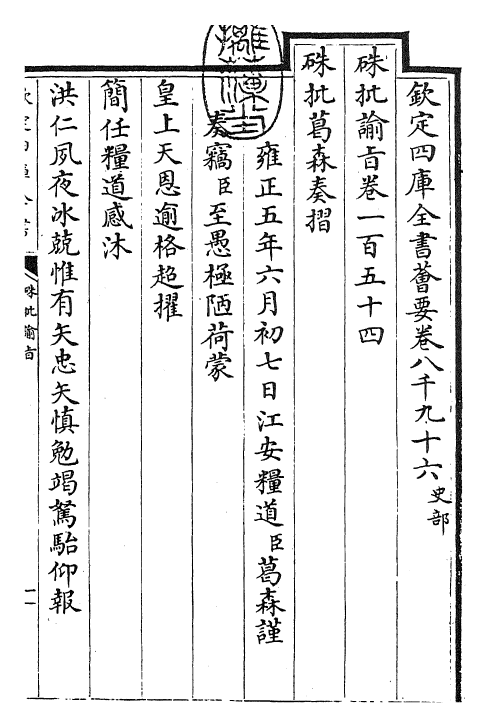 欽定四庫全書薈要卷八千九十六史部
硃批諭旨卷一百五十四
硃批葛森奏摺
雍正五年六月初七日江安糧道臣葛森謹
奏竊臣至愚極陋荷蒙
皇上天恩逾格超擢
簡任糧道感沐
洪仁夙夜冰兢惟有矢忠矢慎勉竭駑駘仰報
硃批諭旨
一